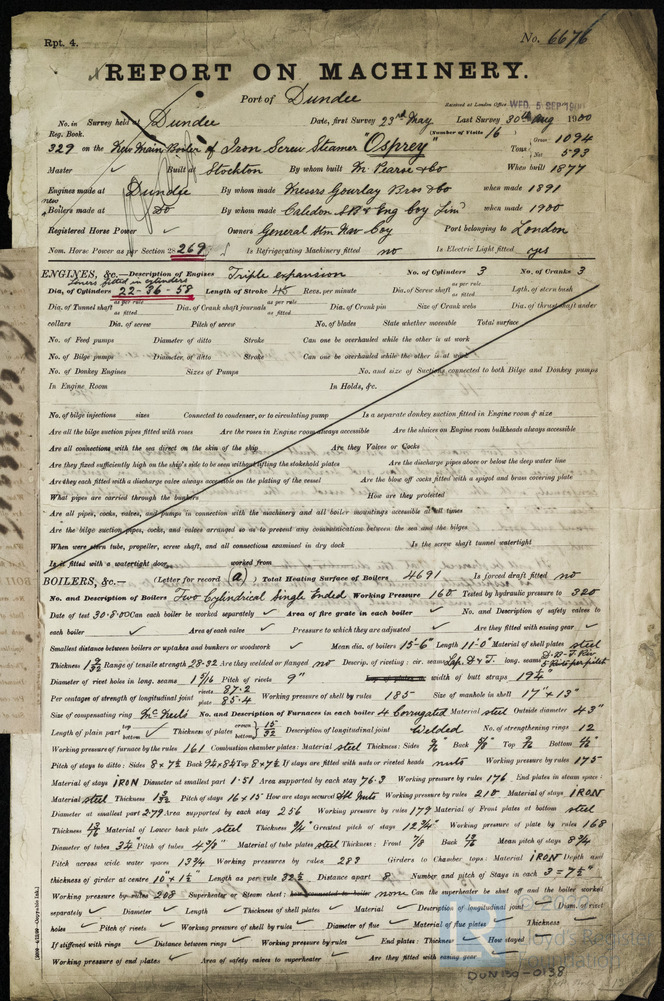 Rpt. 4.
No. 6676
REPORT ON MACHINERY.
Port of Dundee
Received at London Office WED. 5 SEP 1900
No. in Survey held at Dundee Date, first Survey 23rd May Last Survey 30th Aug 1900
Reg. Book. (Number of Visits 16)
329 on the New Main Boiler of Iron Screw Steamer "Osprey" Tons Gross 1094 Net 593
Master ✓ Built at Stockton By whom built M. Pearse & Co When built 1877
Engines made at Dundee By whom made Messrs Gourlay Bros & Co when made 1891
new Boilers made at Do By whom made Caledon S.B. & Eng Coy Limd when made 1900
Registered Horse Power ✓ Owners General Stm Nav Coy Port belonging to London
Nom. Horse Power as per Section 28 269 Is Refrigerating Machinery fitted no Is Electric Light fitted yes
ENGINES, &c.—Description of Engines Triple expansion No. of Cylinders 3 No. of Cranks 3
liners fitted in cylinders
Dia. of Cylinders 22-36-58 Length of Stroke 45 Revs. per minute Dia. of Screw shaft as per rule as fitted Lgth. of stern bush
Dia. of Tunnel shaft as per rule as fitted Dia. of Crank shaft journals as per rule as fitted Dia. of Crank pin Size of Crank webs Dia. of thrust shaft under
collars Dia. of screw Pitch of screw No. of blades State whether moveable Total surface
No. of Feed pumps Diameter of ditto Stroke Can one be overhauled while the other is at work
No. of Bilge pumps Diameter of ditto Stroke Can one be overhauled while the other is at work
No. of Donkey Engines Sizes of Pumps No. and size of Suctions connected to both Bilge and Donkey pumps
In Engine Room In Holds, &c.
No. of bilge injections sizes Connected to condenser, or to circulating pump Is a separate donkey suction fitted in Engine room & size
Are all the bilge suction pipes fitted with roses Are the roses in Engine room always accessible Are the sluices on Engine room bulkheads always accessible
Are all connections with the sea direct on the skin of the ship Are they Valves or Cocks
Are they fixed sufficiently high on the ship's side to be seen without lifting the stokehold plates Are the discharge pipes above or below the deep water line
Are they each fitted with a discharge valve always accessible on the plating of the vessel Are the blow off cocks fitted with a spigot and brass covering plate
What pipes are carried through the bunkers How are they protected
Are all pipes, cocks, valves, and pumps in connection with the machinery and all boiler mountings accessible at all times
Are the bilge suction pipes, cocks, and valves arranged so as to prevent any communication between the sea and the bilges
When were stern tube, propeller, screw shaft, and all connections examined in dry dock Is the screw shaft tunnel watertight
Is it fitted with a watertight door worked from
BOILERS, &c.— (Letter for record (a)) Total Heating Surface of Boilers 4691 Is forced draft fitted no
No. and Description of Boilers Two Cylindrical Single Ended Working Pressure 160 Tested by hydraulic pressure to 320
Date of test 30.8.00 Can each boiler be worked separately ✓ Area of fire grate in each boiler ✓ No. and Description of safety valves to
each boiler ✓ Area of each valve ✓ Pressure to which they are adjusted ✓ Are they fitted with easing gear ✓
Smallest distance between boilers or uptakes and bunkers or woodwork ✓ Mean dia. of boilers 15'-6" Length 11'-0" Material of shell plates steel
Thickness 1 9/32 Range of tensile strength 28-32 Are they welded or flanged no Descrip. of riveting: cir. seams Lap. D & T. long. seams
Diameter of rivet holes in long. seams 1 5/16 Pitch of rivets 9" width of butt straps 19 1/4"
Per centages of strength of longitudinal joint rivets 87.2 plate 85.4 Working pressure of shell by rules 185 Size of manhole in shell 17" × 13"
Size of compensating ring McNeils No. and Description of Furnaces in each boiler 4 Corrugated Material steel Outside diameter 43"
Length of plain part top bottom ✓ Thickness of plates crown bottom 15/32 Description of longitudinal joint Welded No. of strengthening rings 12
Working pressure of furnace by the rules 161 Combustion chamber plates: Material steel Thickness: Sides Back Top Bottom
Pitch of stays to ditto: Sides 8 × 7½ Back Top 8 × 7½ If stays are fitted with nuts or riveted heads nuts Working pressure by rules 175
Material of stays IRON Diameter at smallest part 1.51 Area supported by each stay 76.3 Working pressure by rules 176 End plates in steam space:
Material steel Thickness Pitch of stays 16 × 15 How are stays secured Dbl Nuts Working pressure by rules 210 Material of stays IRON
Diameter at smallest part 2.79 Area supported by each stay 256 Working pressure by rules 179 Material of Front plates at bottom steel
Thickness Material of Lower back plate steel Thickness Greatest pitch of stays 12¾" Working pressure of plate by rules 168
Diameter of tubes 3¼ Pitch of tubes Material of tube plates steel Thickness: Front Back Mean pitch of stays 8¾
Pitch across wide water spaces 13¾ Working pressures by rules 283 Girders to Chamber tops: Material IRON Depth and
thickness of girder at centre 10" × 1½" Length as per rule 32½ Distance apart 8 Number and pitch of Stays in each 3 = 7½"
Working pressure by rules 208 Superheater or Steam chest; how connected to boiler none Can the superheater be shut off and the boiler worked
separately ✓ Diameter ✓ Length ✓ Thickness of shell plates ✓ Material ✓ Description of longitudinal joint ✓ Diam. of rivet
holes ✓ Pitch of rivets ✓ Working pressure of shell by rules ✓ Diameter of flue ✓ Material of flue plates ✓ Thickness ✓
If stiffened with rings ✓ Distance between rings ✓ Working pressure by rules ✓ End plates: Thickness ✓ How stayed
Working pressure of end plates ✓ Area of safety valves to superheater ✓ Are they fitted with easing gear ✓
Lloyd's Register
Foundation
DUN130-0138